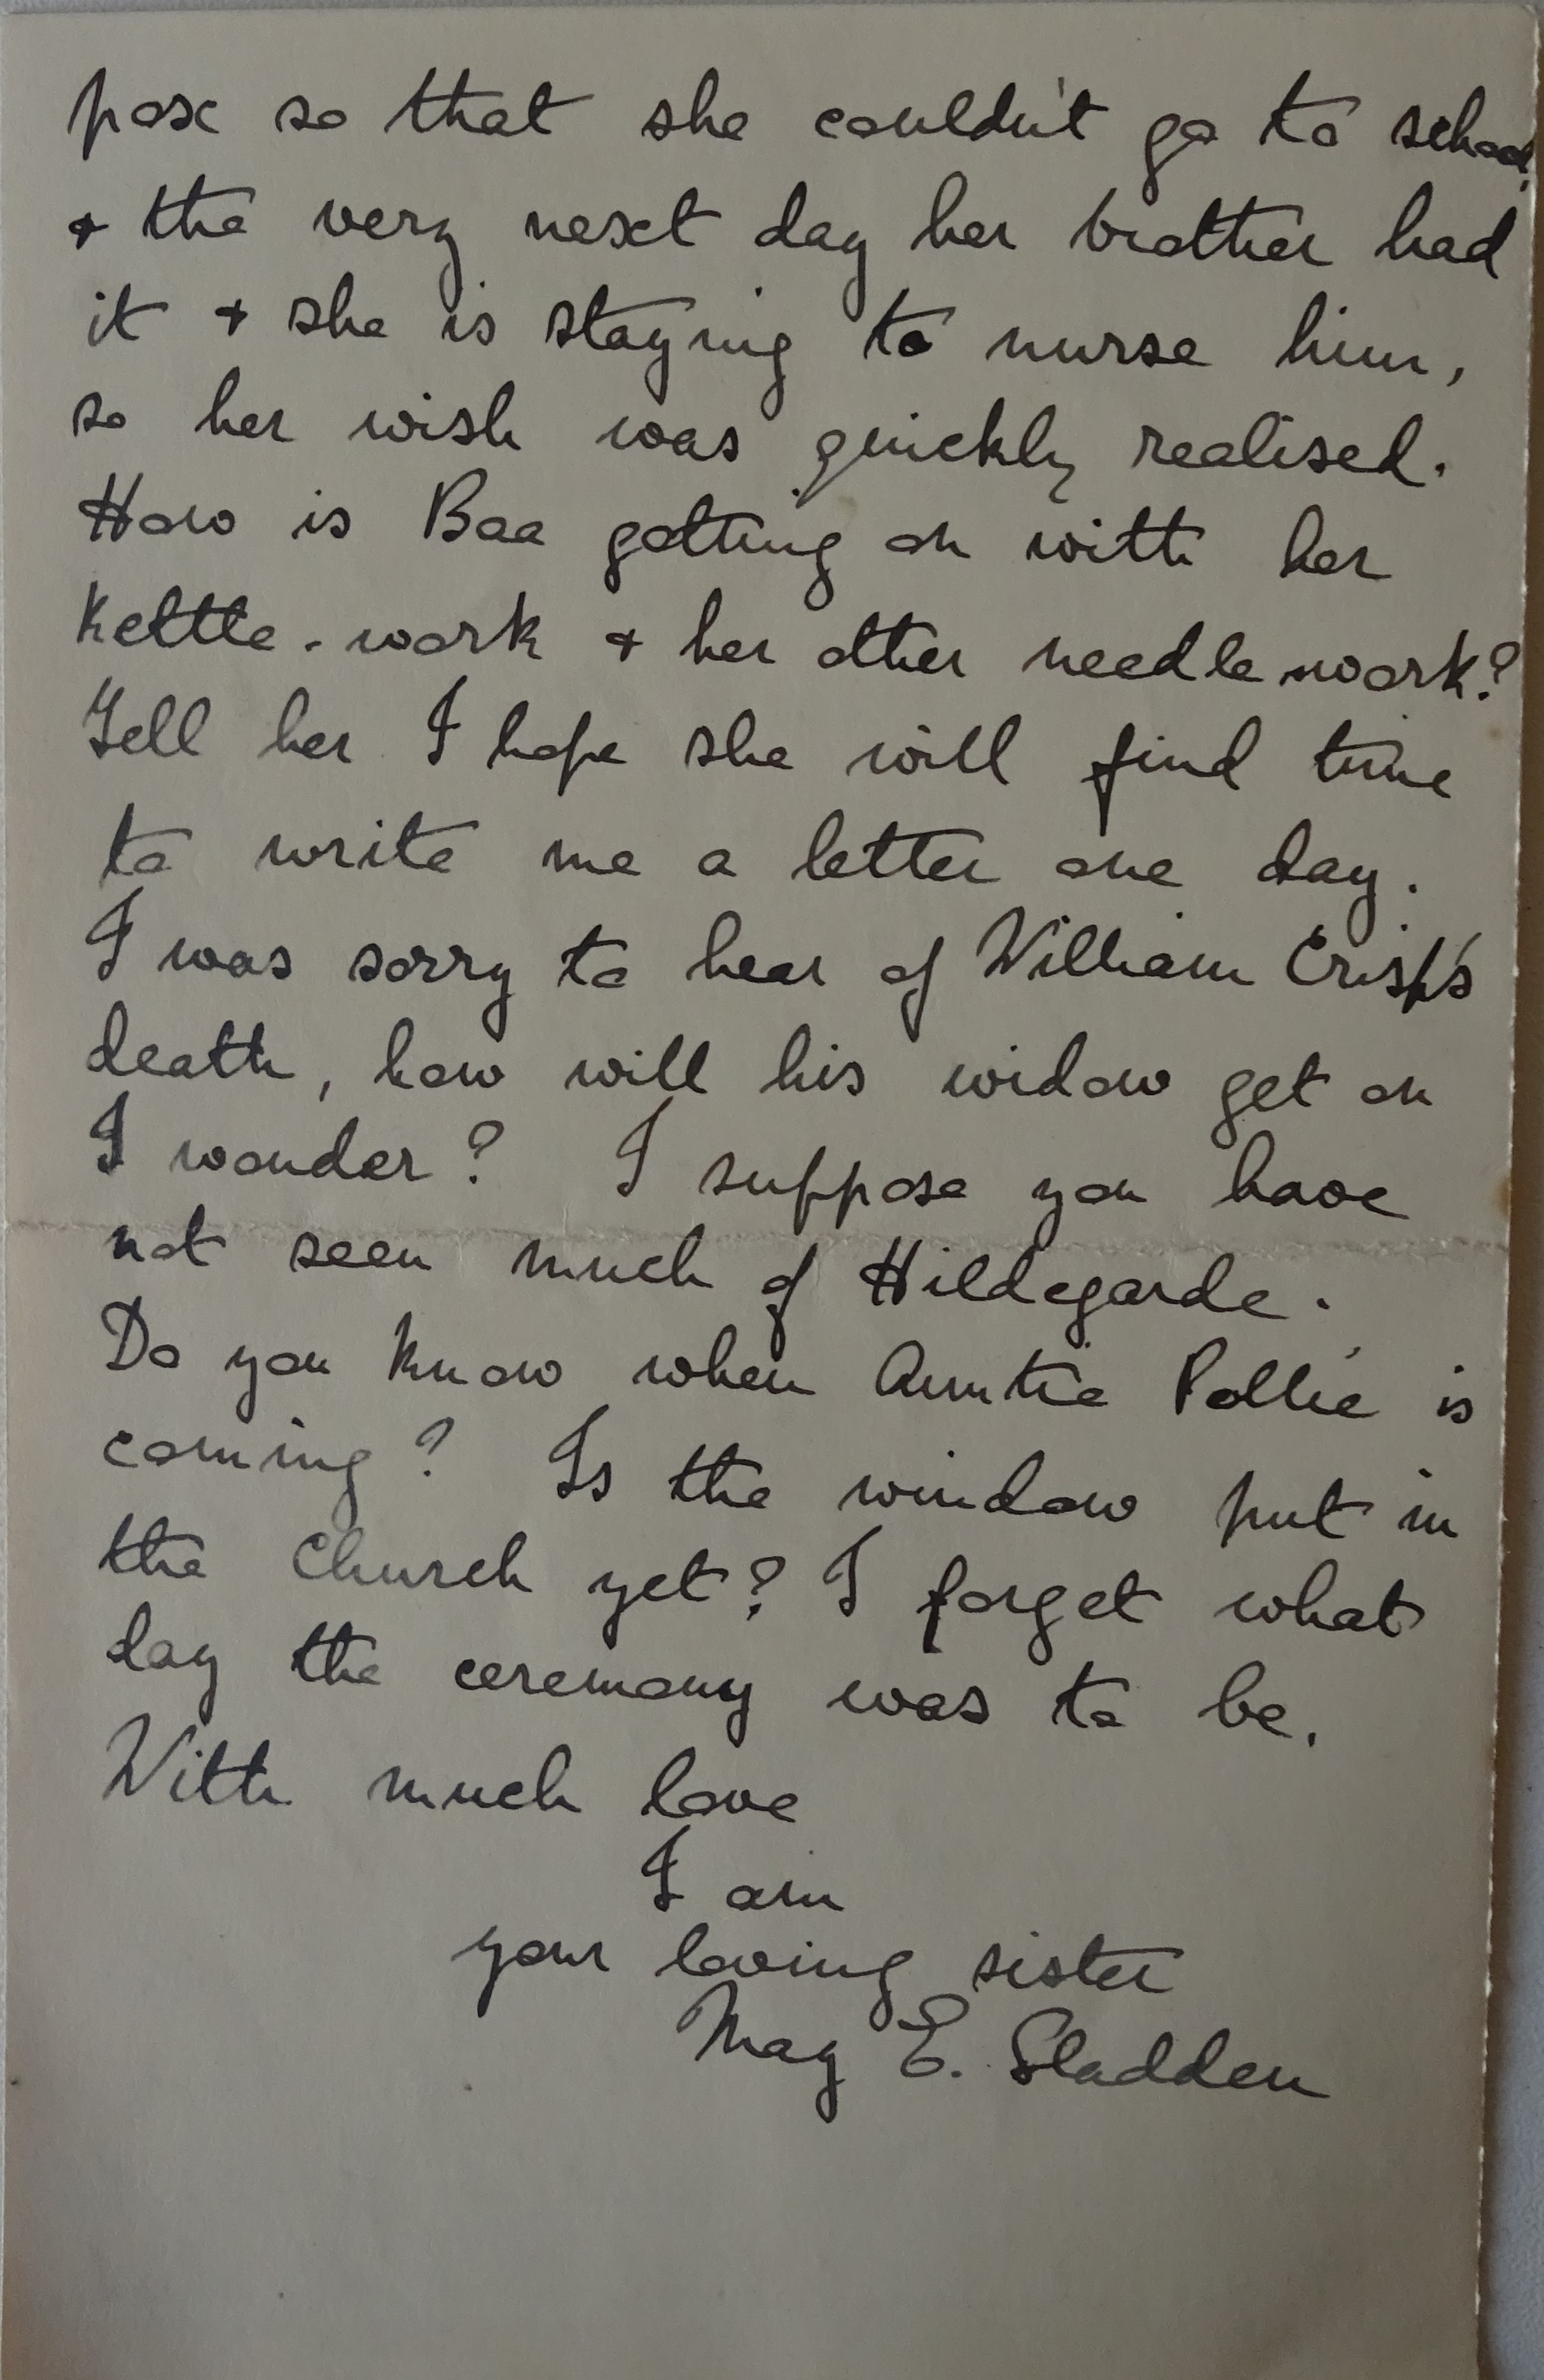 pox so that she couldn't go to school,
+ the very next day her brother had
it + she is staying to nurse him,
so her wish was quickly realised.
How is Baa getting on with her
kettle-work + her other needlework?
Tell her I hope she will find time
to write me a letter one day.
I was sorry to hear of William Crisp's
death, how will his widow get on
I wonder? I suppose you have
not seen much of Hildegarde.
Do you know when Auntie Pollie is
coming? Is the window put in
the Church yet? I forget what
day the ceremony was to be.
With much love
I am
your loving sister
May E. Sladden